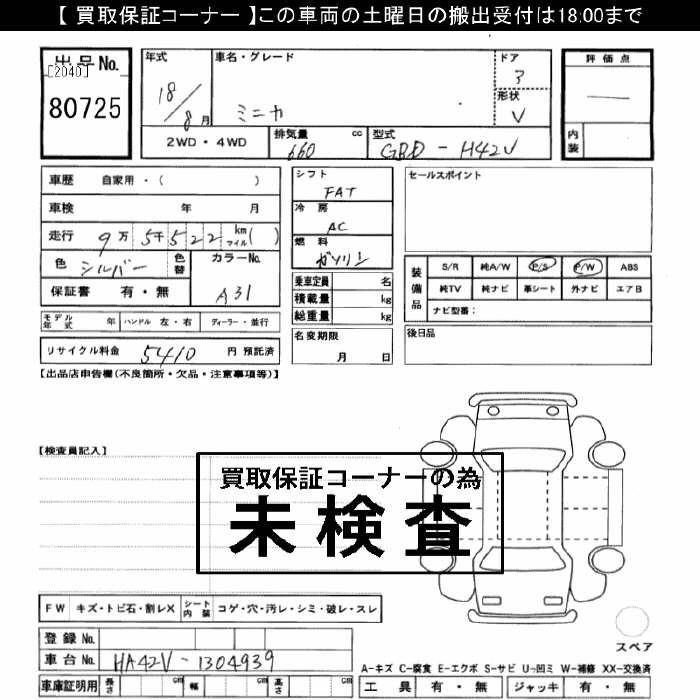 【 買取保証コーナー 】この車両の土曜日の搬出受付は18:00まで
出品No.
[2040]
80725
年式
18/8月
車名・グレード
ミニカ
ドア
ア
形状
V
2WD・4WD
排気量
660
cc
型式
GBD-H42V
評価点
内装
車歴 自家用・( )
車検 年 月
走行 9万5千522 km マイル( )
色 シルバー
色替
カラーNo.
A31
保証書 有・無
シフト
FAT
冷房
AC
燃料
ガソリン
乗車定員 名
積載量 kg
総重量 kg
名変期限
月 日
セールスポイント
装備品
S/R 純A/W P/S P/W ABS
純TV 純ナビ 革シート 外ナビ エアB
ナビ型番:
後日品
モデル年式 年 ハンドル 左・右 ディーラー・並行
リサイクル料金 5410 円 預託済
【出品店申告欄(不良箇所・欠品・注意事項等)】
【検査員記入】
買取保証コーナーの為
未検査
FW キズ・トビ石・割レX シート内装 コゲ・穴・汚レ・シミ・破レ・スレ
登録 No.
車台 No. HA42V-1304939
車庫証明用 長さ cm 幅 cm 高さ cm
スペア
A-キズ C-腐食 E-エクボ S-サビ U-凹ミ W-補修 XX-交換済
工具 有・無 ジャッキ 有・無